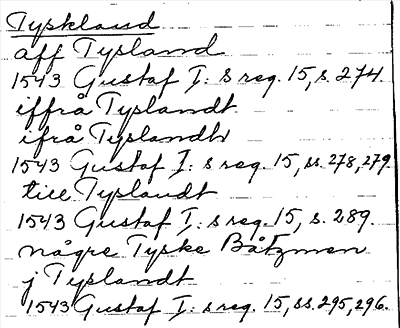 Tyskland
aff Tysland
1543 Gustaf I: s reg. 15, s. 274.
iffrå Tyslandt
ifrå Tyslandh
1543 Gustaf I: s reg. 15, ss. 278, 279.
till Tyslandt
1543 Gustaf I: s reg. 15, s. 289.
någre Tyske Båtzmen
j Tyslandt
1543 Gustaf I: s reg. 15, ss. 295, 296.